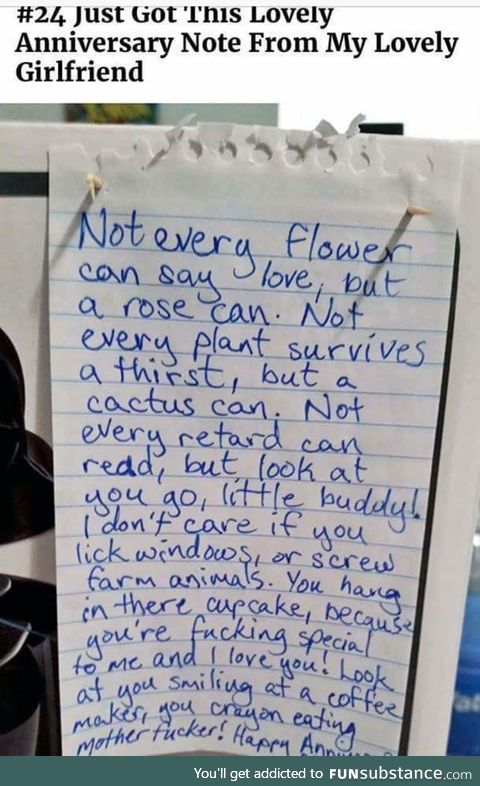 #24 Just Got This Lovely
Anniversary Note From My Lovely
Girlfriend
Not every flower
can say love, but
a rose can. Not
every plant survives
a thirst, but a
cactus can. Not
every retard can
redd, but look at
you go, little buddy!
I don't care if you
lick windows, or screw
farm animals. You hang
in there cupcake, because
you're fucking special
to me and I love you! Look
at you smiling at a coffee
maker, you crayon eating
mother fucker! Happy
You'll get addicted to FUNsubstance.com